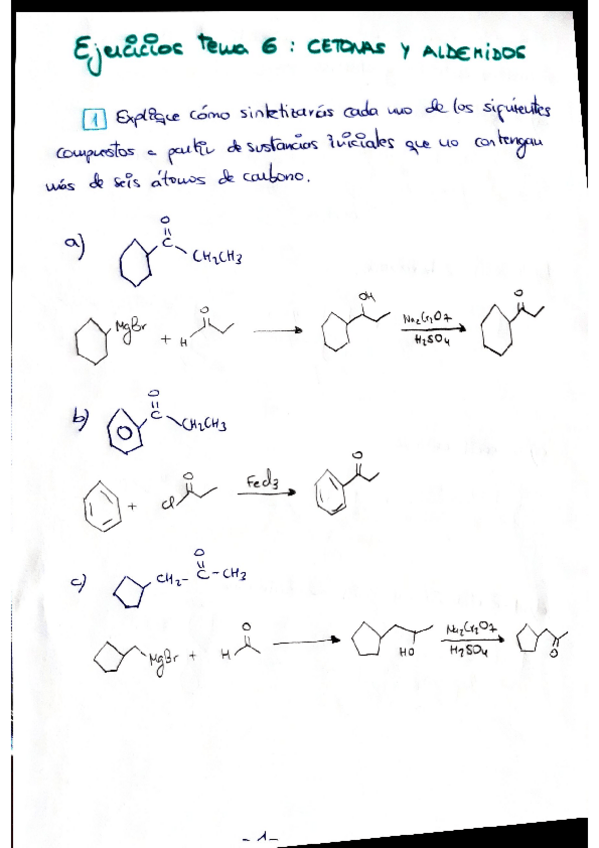 Ejercicios tema 6: CETONAS Y ALDEHIDOS
1 Explique cómo sintetizarás cada uno de los siguientes
compuestos a partir de sustancias iniciales que no contengan
más de seis átomos de carbono.
a)
O
C
CH2CH3
MgBr
+
H
O
OH
Na2Cr2O7
H2SO4
O
b)
O
C
CH2CH3
+
Cl
O
FeCl3
O
c)
CH2-
O
C-CH3
MgBr
+
H
O
HO
Na2Cr2O7
H2SO4
O
-1-